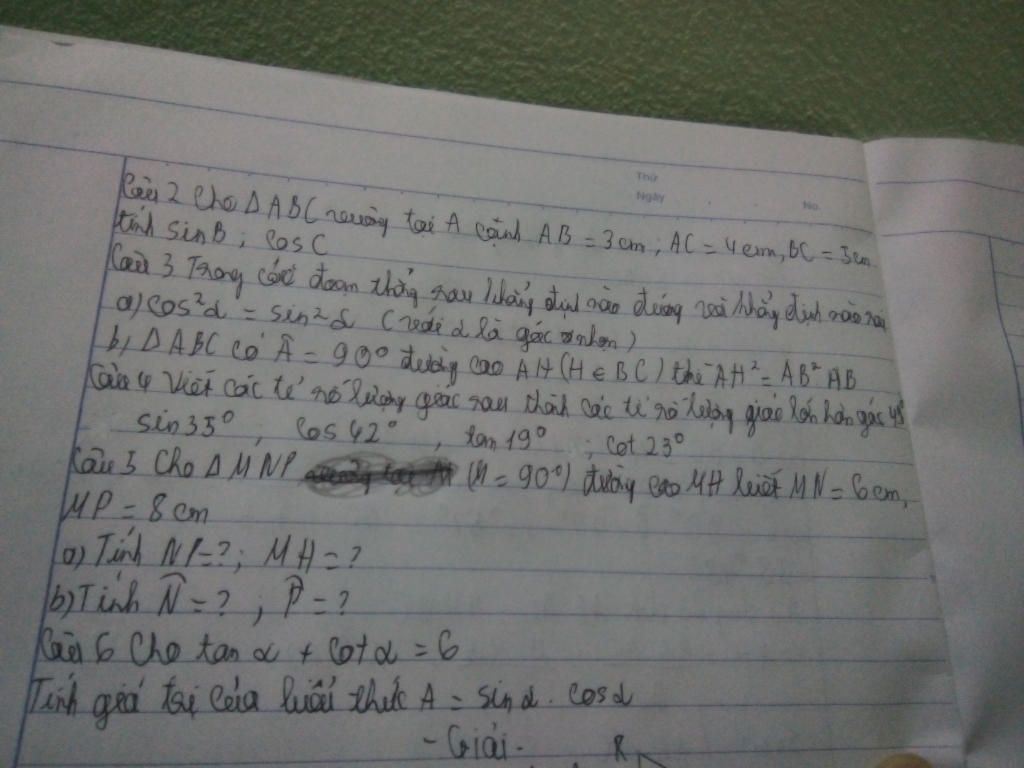 Thứ
Ngày No.
Câu 2 Cho ΔABC vuông tại A cạnh AB = 3cm; AC = 4cm, BC = 5cm
tính sinB; cosC
Câu 3 Trong các đoạn thẳng sau khẳng định nào đúng và khẳng định nào sai
a) cos²α = sin²α (với α là góc nhọn)
b, ΔABC có Â = 90° đường cao AH (H ∈ BC) thì AH² = AB² AB
Câu 4 Viết các tỉ số lượng giác sau thành các tỉ số lượng giác lớn hơn góc 45°
sin35° ; cos42° , tan19° ; cot23°
Câu 5 Cho ΔMNP (M = 90°) đường cao MH biết MN = 6cm,
MP = 8cm
a) Tính NP=?; MH = ?
b) Tính N̂ = ? ; P̂ = ?
Câu 6 Cho tanα + cotα = 6
Tính giá trị của biểu thức A = sinα . cosα
- Giải -